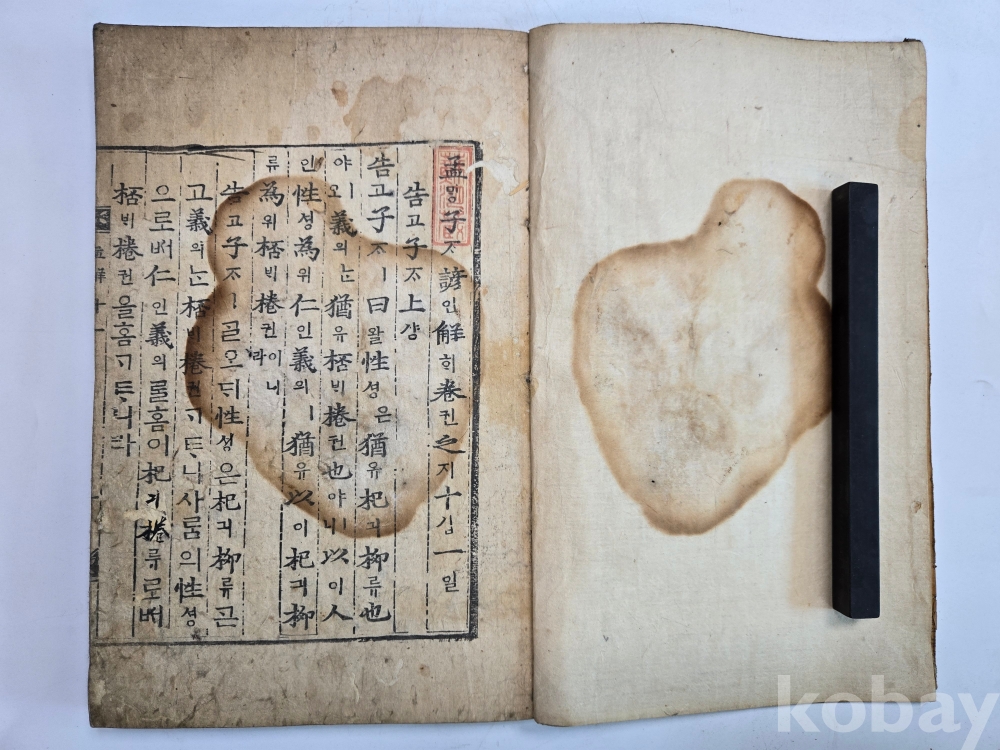 孟ᄆᆡᆼ子ᄌᆞ諺언解ᄒᆡ卷권之지十십一일
告고子ᄌᆞ上샹
告고子ᄌᆞㅣ曰왈性셩은猶유杞긔柳류也
야ㅣ오義의ᄂᆞᆫ猶유桮ᄇᆡ棬권也야ㅣ니以이人
인性셩為위仁인義의ㅣ猶유以이杞긔柳
류為위桮ᄇᆡ棬권이니라
告고子ᄌᆞㅣᄀᆞᆯ오ᄃᆡ性셩은杞긔柳류ᄀᆞᆮ
고義의ᄂᆞᆫ桮ᄇᆡ棬권ᄀᆞᄐᆞ니사ᄅᆞᆷ의性셩
으로ᄡᅥ仁인義의ᄅᆞᆯ홈이杞긔류로ᄡᅥ
桮ᄇᆡ棬권을홈ᄀᆞᄐᆞ니라
kobay